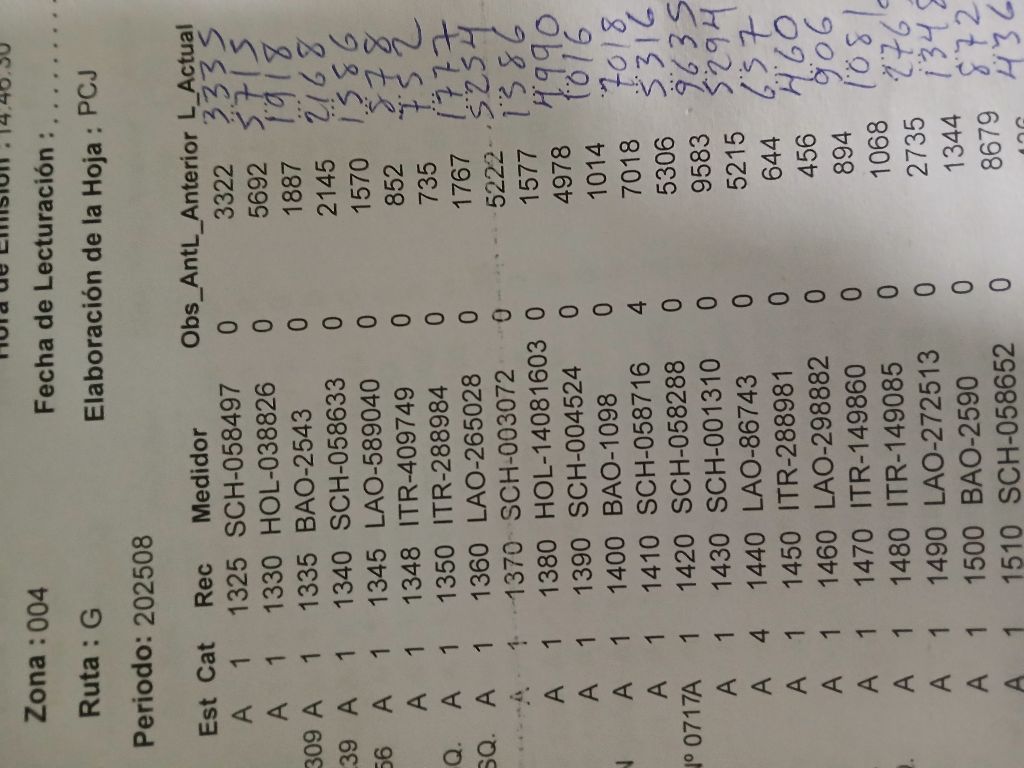 Hora de Emisión : 14:46:30
Fecha de Lecturación : ..........
Elaboración de la Hoja : PCJ
Zona : 004
Ruta : G
Periodo: 202508
Est Cat Rec Medidor Obs_AntL_Anterior L_Actual
A 1 1325 SCH-058497 0 3322 3335
A 1 1330 HOL-038826 0 5692 5715
309 A 1 1335 BAO-2543 0 1887 1918
39 A 1 1340 SCH-058633 0 2145 2168
56 A 1 1345 LAO-589040 0 1570 1586
A 1 1348 ITR-409749 0 852 878
Q. A 1 1350 ITR-288984 0 735 752
SQ. A 1 1360 LAO-265028 0 1767 1777
A 1 1370 SCH-003072 0 5222 5254
A 1 1380 HOL-14081603 0 1577 1586
A 1 1390 SCH-004524 0 4978 4990
N A 1 1400 BAO-1098 0 1014 1016
A 1 1410 SCH-058716 4 7018 7018
Nº 0717A 1 1420 SCH-058288 0 5306 5316
A 1 1430 SCH-001310 0 9583 9635
A 4 1440 LAO-86743 0 5215 5294
A 1 1450 ITR-288981 0 644 657
A 1 1460 LAO-298882 0 456 460
A 1 1470 ITR-149860 0 894 906
A 1 1480 ITR-149085 0 1068 1081
A 1 1490 LAO-272513 0 2735 276
A 1 1500 BAO-2590 0 1344 1348
A 1 1510 SCH-058652 0 8679 872
436